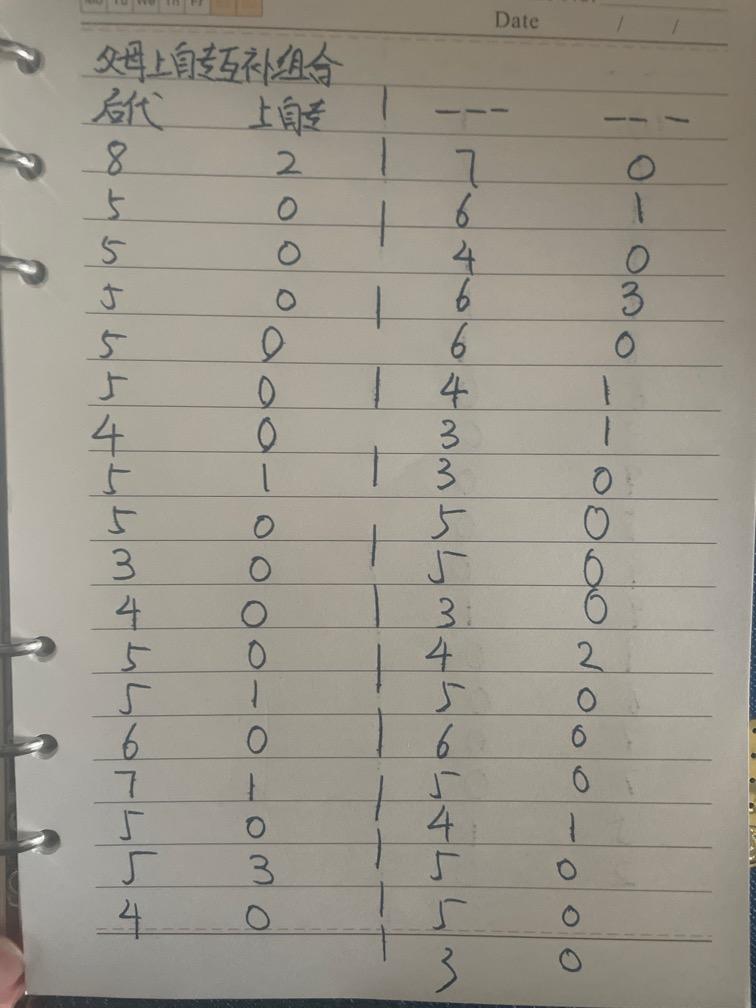 Mo Tu We Th Fr
Date / /
父母上自专互补组合
后代 上自专 | --- ---
8 2 | 7 0
5 0 | 6 1
5 0 4 0
5 0 | 6 3
5 0 6 0
5 0 | 4 1
4 0 3 1
5 1 | 3 0
5 0 5 0
3 0 | 5 0
4 0 | 3 0
5 0 | 4 2
5 1 5 0
6 0 | 6 0
7 1 | 5 0
5 0 | 4 1
5 3 | 5 0
4 0 | 5 0
| 3 0